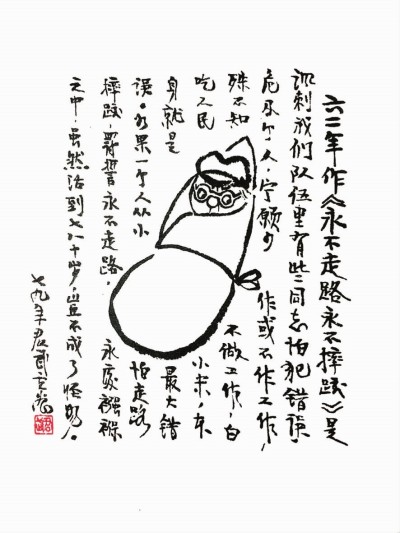 六二年作《永不走路永不摔跤》是
讽刺我们队伍里有些同志怕犯错误、
危及个人,宁愿少作或不作工作,
殊不知不做工作,白
吃人民小米,本
身就是最大错
误。如果一个人从小怕走路
摔跤,罚誓永不走路,永处襁褓
之中,虽然活到七八十岁,岂不成了怪物。
七九年君武